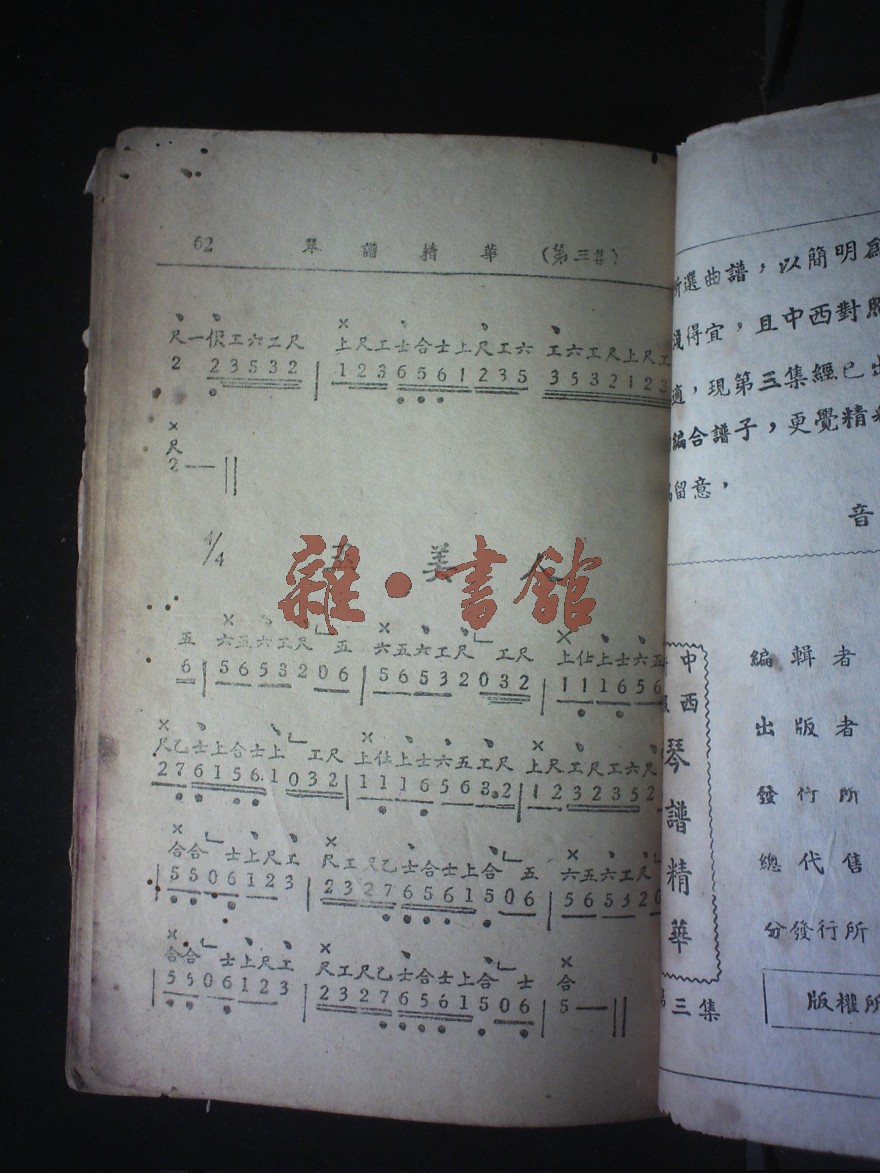 62 琴譜精華 (第三集)
尺一伬工六工尺 上尺工士合士上尺工六 工六工尺上尺工
2 23532 | 1236561235 3532123
尺
2 — ||
4/4 美人
雜·書館
五 六五六工尺 五 六五六工尺 工尺 上仩上士六五
6 | 5653206 | 56532032 | 111656
尺乙士上合士上 工尺 上仩上士六五工尺 上尺工尺工六尺
276156.1032 | 1116563.2 | 1232352
合合 士上尺工 尺工尺乙士合士上合 五 六五六工尺
| 5506123 | 23276561506 | 565320
合合 士上尺工 尺工尺乙士合士上合 士 合
| 5506123 | 23276561506 | 5 — ||
所選曲譜，以簡明
得宜，且中西對照
適，現第三集經已出
編合譜子，更覺精
留意，
音
中西
琴譜精華
三集
編輯者
出版者
發行所
總代售
分發行所
版權所